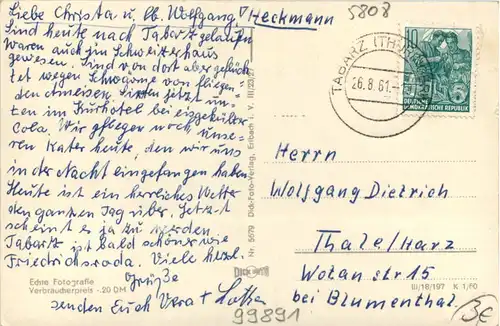 Liebe Christa u. lb. Wolfgang, Heckmann
Sind heute nach Tabarz gelaufen
Waren auch im Schweizerhaus
gewesen. Sind von dort aber geflüch
tet wegen Schwärme von fliegen-
den Ameisen. Sitzen jetzt un-
ten im Kurhotel bei eisgekühlter
Cola. Wir pflegen noch unse-
ren Kater heute, den wir uns
in der Nacht eingefangen haben.
Heute ist ein herrliches Wetter
den ganzen Tag über. Jetzt
scheint es ja zu werden
Tabarz ist bald schöner wie
Friedrichsroda. Viele herzl.
Grüße
senden Euch Vera + Lothar
Echte Fotografie
Verbraucherpreis -.20 DM
99891
Dick-Foto-Verlag, Erlbach i. V.
Nr. 5679
III/23/27
5808
TABARZ (THÜR
26.8.61.-
10
DEUTSCHE
DEMOKRATISCHE REPUBLIK
Herrn
Wolfgang Dietrich
Thale/Harz
Wotanstr 15
bei Blumenthal
III/18/197 K 1,f0
3€